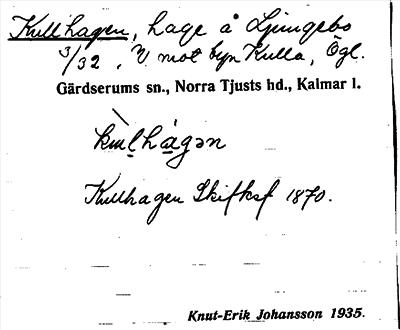 Kullhagen, hage å Ljungsbo
3/32, V mot byn Kulla, Ögl.
Gärdserums sn., Norra Tjusts hd., Kalmar l.
Kullhagen Skifksf 1870.
Knut-Erik Johansson 1935.